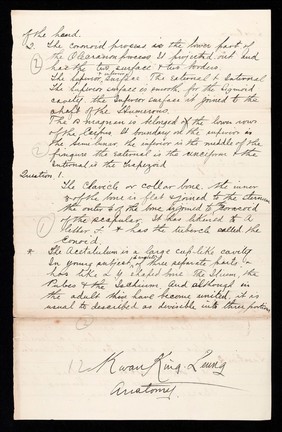 of the hand.
2. The coronoid process is the lower part of
(2) the Olecranon process it projected out and
has the two surface & two borders.
The superior surface. The external & internal
The superior surface is smooth, for the sigmoid
cavity, the inferior surface it joined to the
of the Humerus
The is belonged of the lower row
of the Carpus it boundary at the superior is
the Semi lunar, the inferior is the middle of the
(2) fingure the external is the & the
internal is the Trapezoid
Question 1.
The Clavicle or collar bone, the inner
of the bone is flat & joined to the sternum
the outer of the bone is joined to Coracoid
(1) of the scapular. It has likened to a
letter f & has the tubercle called the
Conoid.
* The Acetabulum is a large cup-like cavity
In young subject, of three separate parts
has like a Y shaped bone the Ilium, the
Pubes & the Ischium. and although in
the adult this have become united, it is
usual to described as devisible into three portions
12 Kwan King Leung
Anatomy.